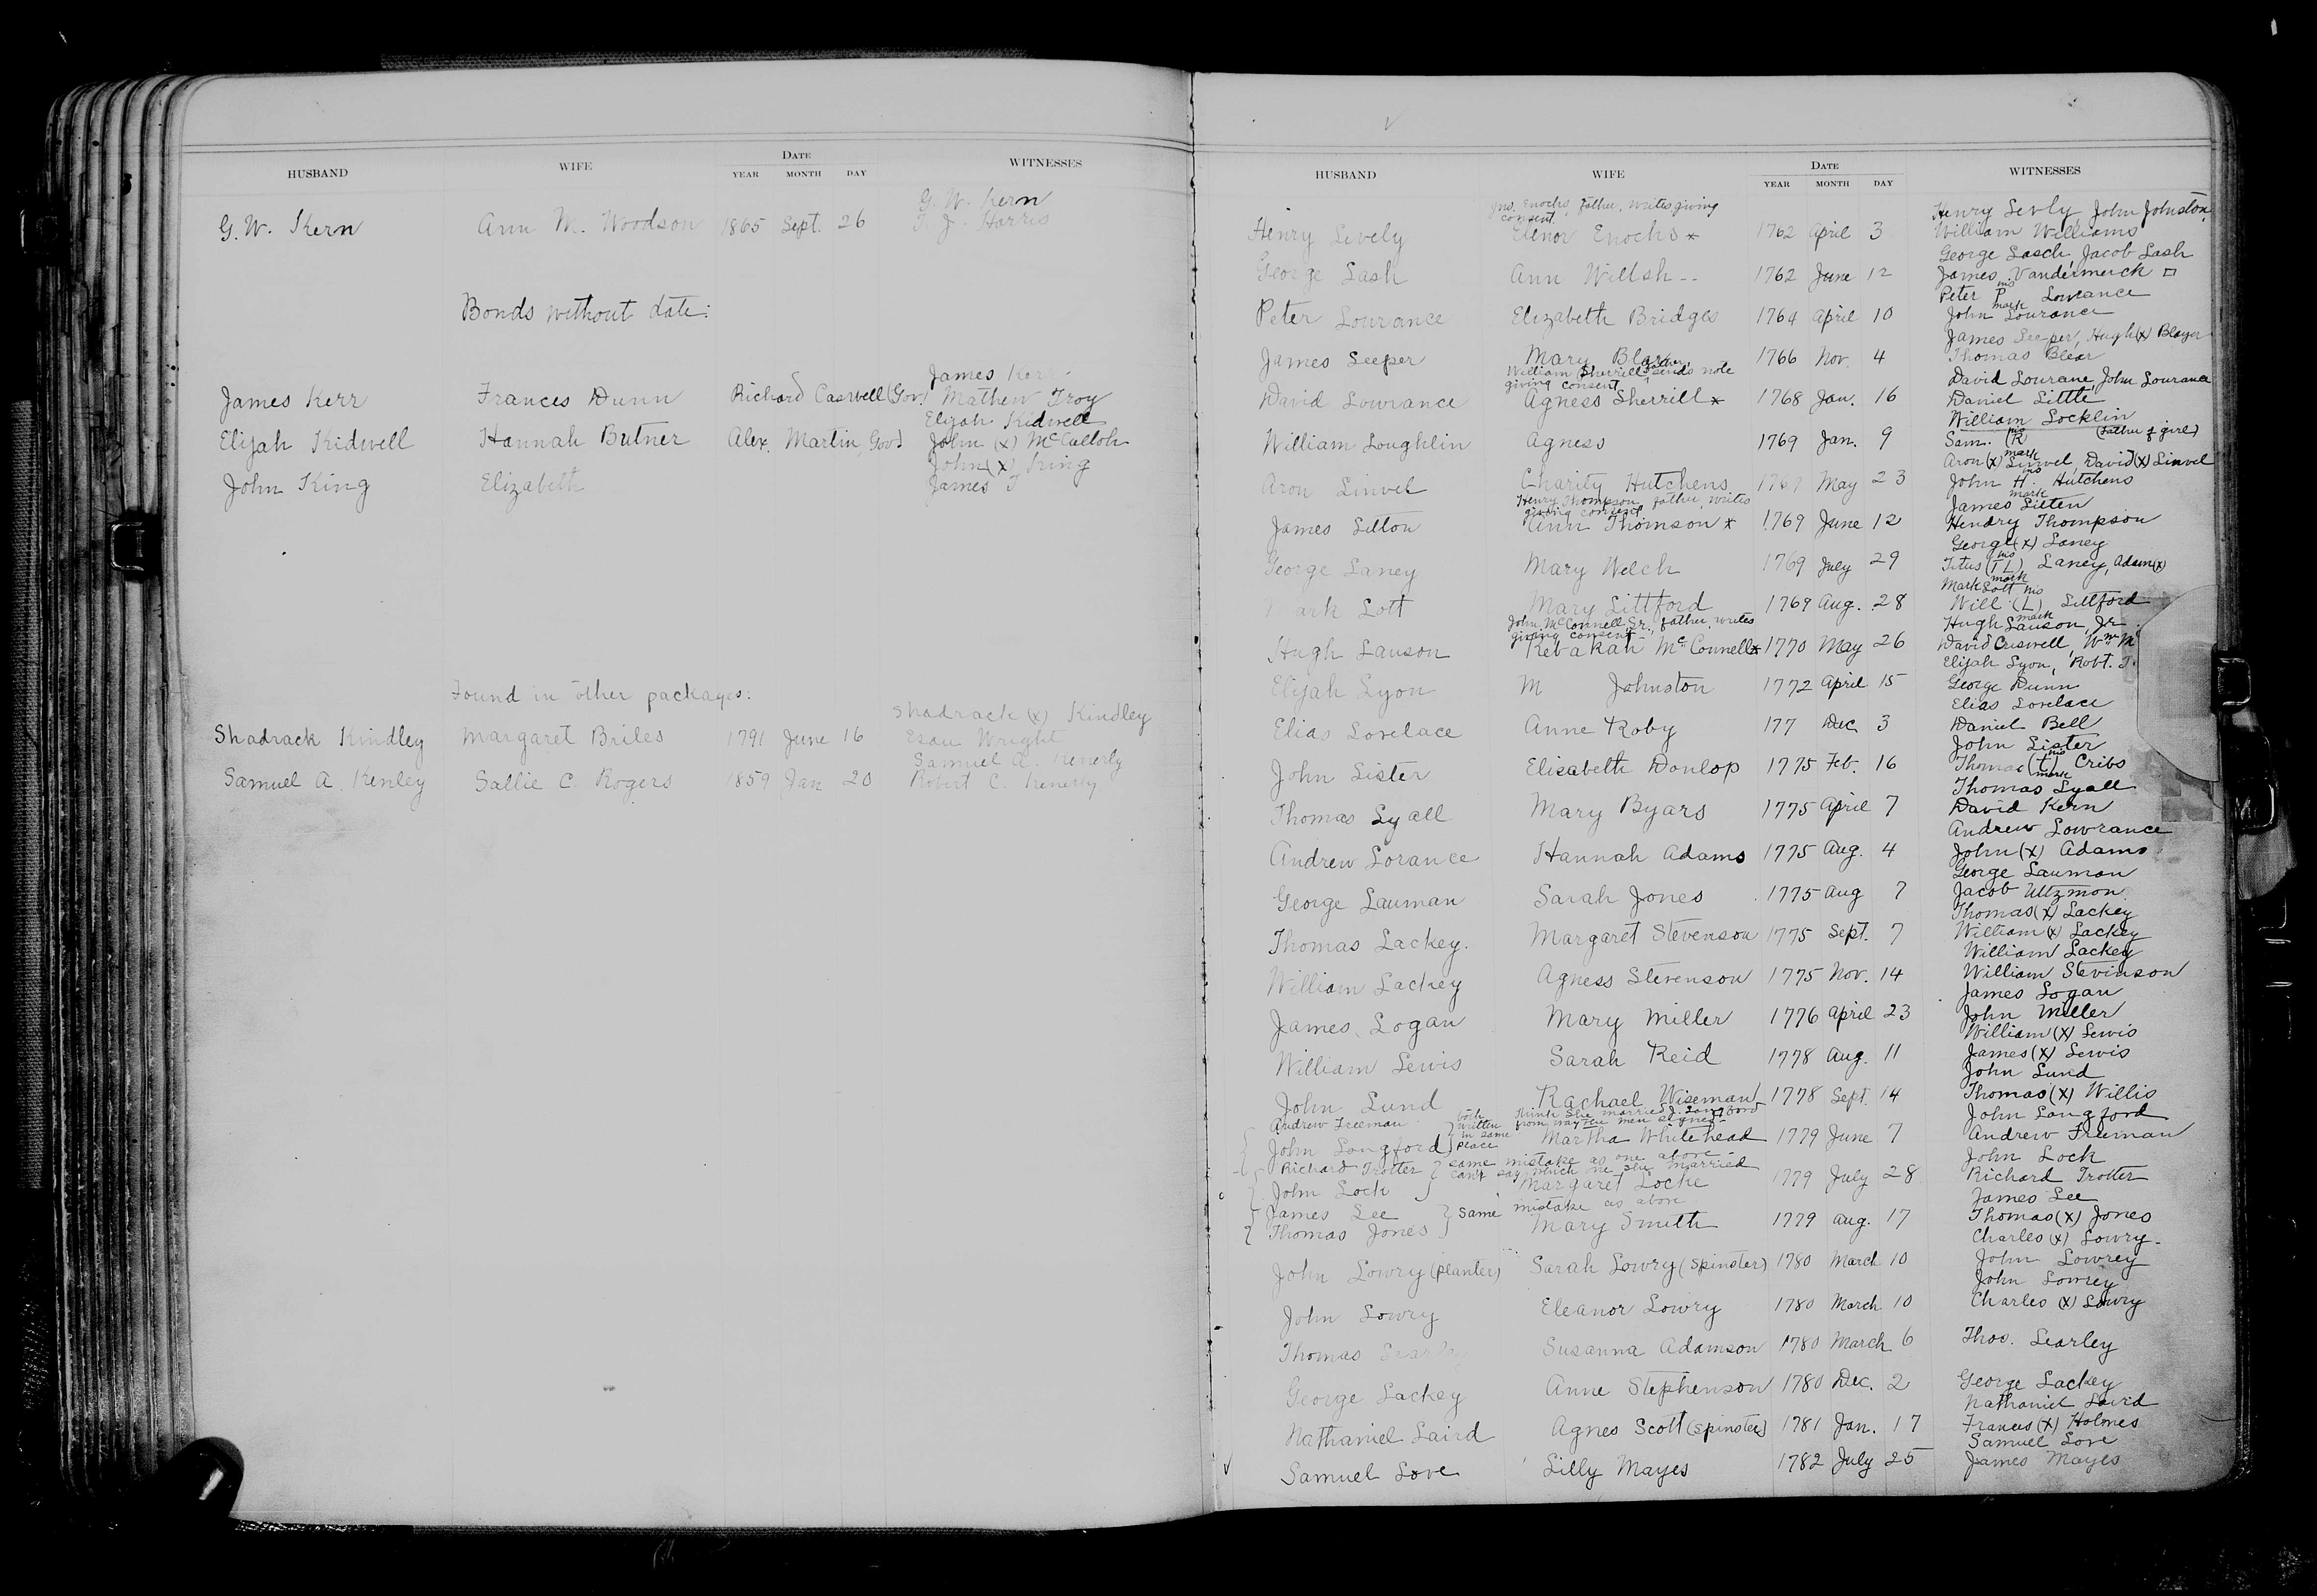 HUSBAND WIFE DATE WITNESSES
YEAR MONTH DAY
G. W. Kern
G. W. Kern Ann M. Woodson 1865 Sept. 26 T. J. Harris
Bonds without date:
James Kerr
James Kerr Frances Dunn Richard Caswell (Gov.) Mathew Troy
Elijah Kidwell
Elijah Kidwell Hannah Butner Alex. Martin, Gov. John (x) McCulloh
John (x) King
John King Elizabeth James T
Found in other packages:
Shadrack (x) Kindley
Shadrack Kindley Margaret Briles 1791 June 16 Esau Wright
Samuel A. Kenerly
Samuel A. Kenley Sallie C. Rogers 1859 Jan 20 Robert C. Kenerly
HUSBAND WIFE DATE WITNESSES
YEAR MONTH DAY
Jno. Enochs, father, writes giving consent. Henry Levly, John Johnston,
Henry Lively Elenor Enochs x 1762 April 3 William Williams
George Lasch, Jacob Lash
George Lash Ann Willsh -- 1762 June 12 James Vandermerck
Peter P Lowrance
his mark
Peter Lowrance Elizabeth Bridges 1764 April 10 John Lowrance
James Leeper, Hugh (x) Blayer
James Leeper Mary Blear 1766 Nov. 4 Thomas Blear
William Sherrill, father, sends note giving consent David Lowrane, John Lowrance
David Lowrance Agness Sherrill x 1768 Jan. 16 Daniel Little
William Locklin
William Loughlin Agness 1769 Jan. 9 Sam. (R his mark (father of girl)
Aron (x) Linvel, David (x) Linvel
Aron Linvel Charity Hutchens 1769 May 23 John H. Hutchens
his mark
Henry Thompson, father, writes giving consent James Litten
James Litton Ann Thomson x 1769 June 12 Hendry Thompson
George (x) Laney
George Laney Mary Welch 1769 July 29 Titus (TL) Laney, Adam (x)
his mark
Mark Lott
Mark Lott Mary Littford 1769 Aug. 28 Will (L) Littford
his mark
John McConnell, Sr., father, writes giving consent Hugh Lauson, Jr.
Hugh Lauson Rebakah McConnell x 1770 May 26 David Criswell, Wm. M
Elijah Lyon, Robt. J.
Elijah Lyon M Johnston 1772 April 15 George Dunn
Elias Lovelace
Elias Lovelace Anne Roby 177 Dec 3 Daniel Bell
John Lister
John Lister Elisabeth Dunlop 1775 Feb. 16 Thomas (t) Cribs
his mark
Thomas Lyall
Thomas Lyall Mary Byars 1775 April 7 David Kern
Andrew Lowrance
Andrew Lorance Hannah Adams 1775 Aug. 4 John (x) Adams
George Lauman
George Lauman Sarah Jones 1775 Aug 7 Jacob Utzmon
Thomas (x) Lackey
Thomas Lackey. Margaret Stevenson 1775 Sept. 7 William (x) Lackey
William Lackey
William Lackey Agness Stevenson 1775 Nov. 14 William Stevinson
James Logan
James Logan Mary Miller 1776 April 23 John Miller
William (x) Lewis
William Lewis Sarah Reid 1778 Aug. 11 James (x) Lewis
John Lund
John Lund Rachael Wiseman 1778 Sept. 14 Thomas (x) Willis
Andrew Freeman both written in same place think she married J. Longford from way the men signed John Longford
John Longford Martha Whitehead 1779 June 7 Andrew Freeman
Richard Trotter same mistake as one above - can't say which one she married John Lock
John Lock Margaret Locke 1779 July 28 Richard Trotter
James Lee same mistake as above James Lee
Thomas Jones Mary Smith 1779 Aug. 17 Thomas (x) Jones
Charles (x) Lowry.
John Lowry (planter) Sarah Lowry (spinster) 1780 March 10 John Lowrey
John Lowrey
John Lowry Eleanor Lowry 1780 March 10 Charles (x) Lowry
Thomas Susanna Adamson 1780 March 6 Thos. Learley
George Lackey Anne Stephenson 1780 Dec. 2 George Lackey
Nathaniel Laird
Nathaniel Laird Agnes Scott (spinster) 1781 Jan. 17 Frances (x) Holmes
Samuel Love
Samuel Love Lilly Mayes 1782 July 25 James Mayes